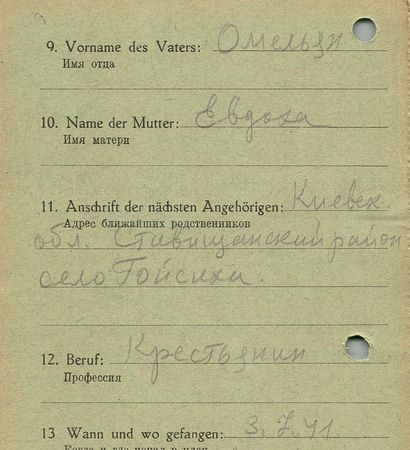 9. Vorname des Vaters: Омельян
Имя отца
10. Name der Mutter: Евдоха
Имя матери
11. Anschrift der nächsten Angehörigen: Киевск.
Адрес ближайших родственников
обл. Ставищанский район
село Гойсиха.
12. Beruf: Крестьянин
Профессия
13 Wann und wo gefangen: 3.7.41.
Когда и где попал в плен